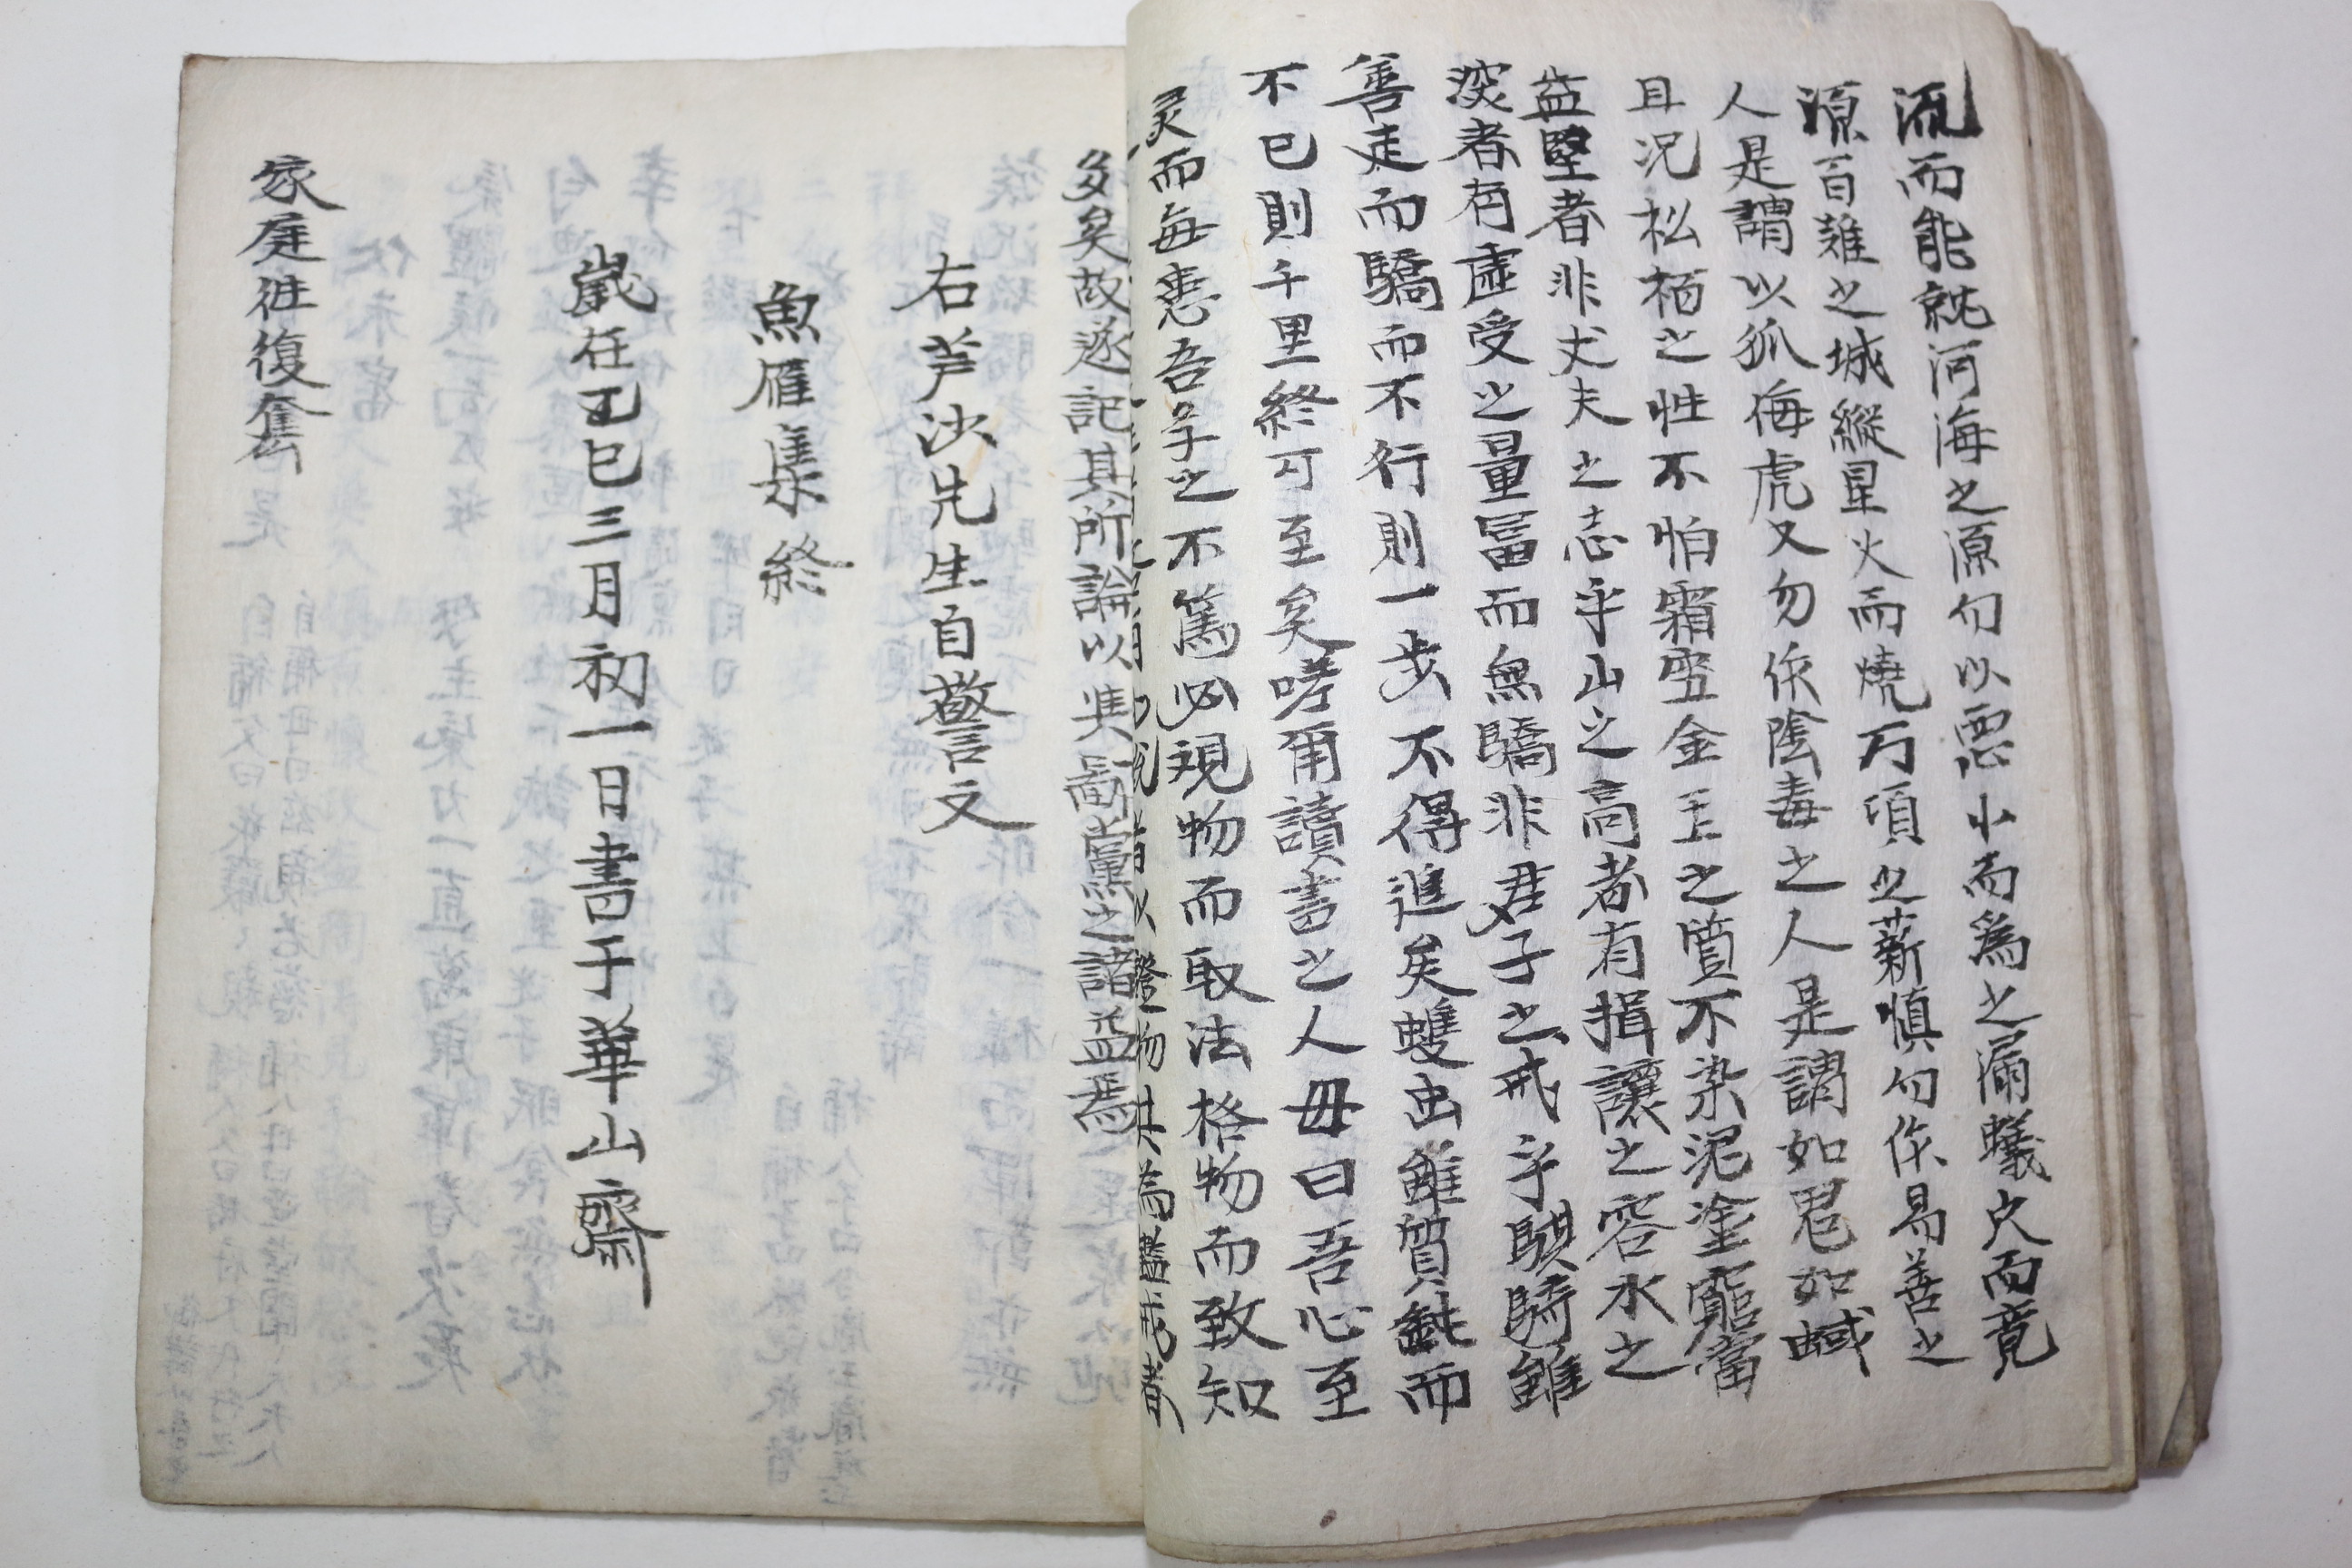 流而能就河海之源勿以惡小而爲之漏蟻穴而竟
源百雉之城縱星火而燒万項之薪愼勿作易善之
人是謂以狐侮虎又勿依陰毒之人是謂如鬼如蜮
且況松栢之性不怕霜雪金玉之質不染泥塗窮當
益堅者非丈夫之志乎山之高者有揖讓之容水之
深者有虛受之量富而無驕非君子之戒乎騏驥雖
善走而驕而不行則一步不得進矣雙虫雖質蠢而
不已則千里終可至矣嗟爾讀書之人毋曰吾心至
灵而每患吾学之不篤必現物而取法格物而致知
多矣故遂記其所論以雋鄙黨之諸益焉
右芦沙先生自警文
魚雁集終
歲在乙巳三月初一日書于華山齋
家庭往復套